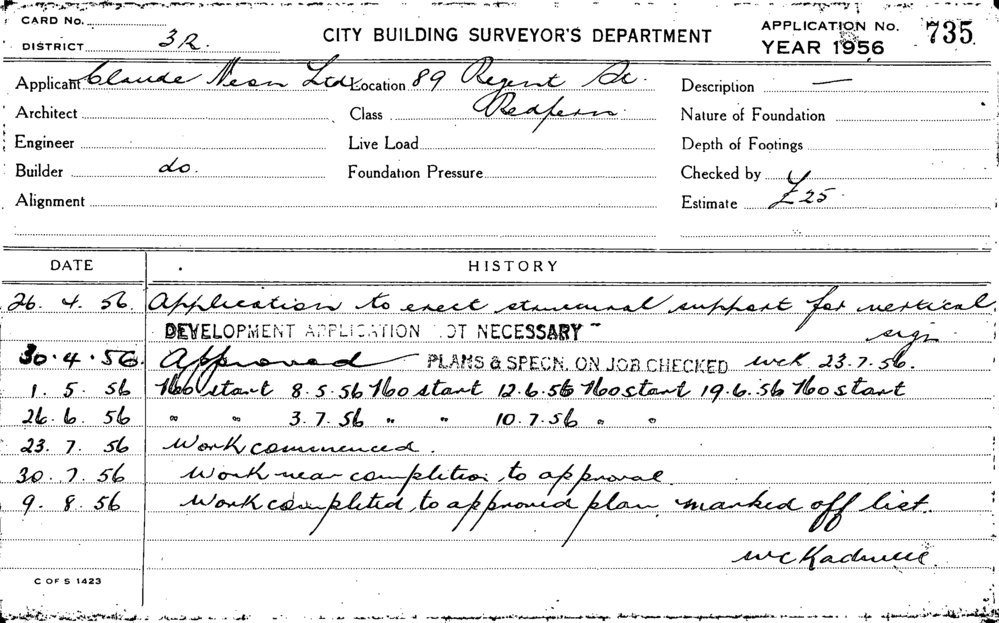 CARD No.
DISTRICT 3R.
CITY BUILDING SURVEYOR'S DEPARTMENT
APPLICATION No. 735
YEAR 1956
Applicant Claude Neon Ltd Location 89 Regent St. Description —
Architect Class Redfern Nature of Foundation
Engineer Live Load Depth of Footings
Builder do. Foundation Pressure Checked by
Alignment Estimate £25
DATE HISTORY
26. 4. 56. Application to erect structural support for vertical
sign
DEVELOPMENT APPLICATION NOT NECESSARY
30.4.56. Approved PLANS & SPECN. ON JOB CHECKED WCK 23.7.56.
1. 5. 56 No start 8.5.56 No start 12.6.56 No start 19.6.56 No start
26. 6. 56 " " 3.7.56 " " 10.7.56 " "
23. 7. 56 Work commenced.
30. 7. 56 Work near completion, to approval
9. 8. 56 Work completed, to approved plan, marked off list.
C OF S 1423